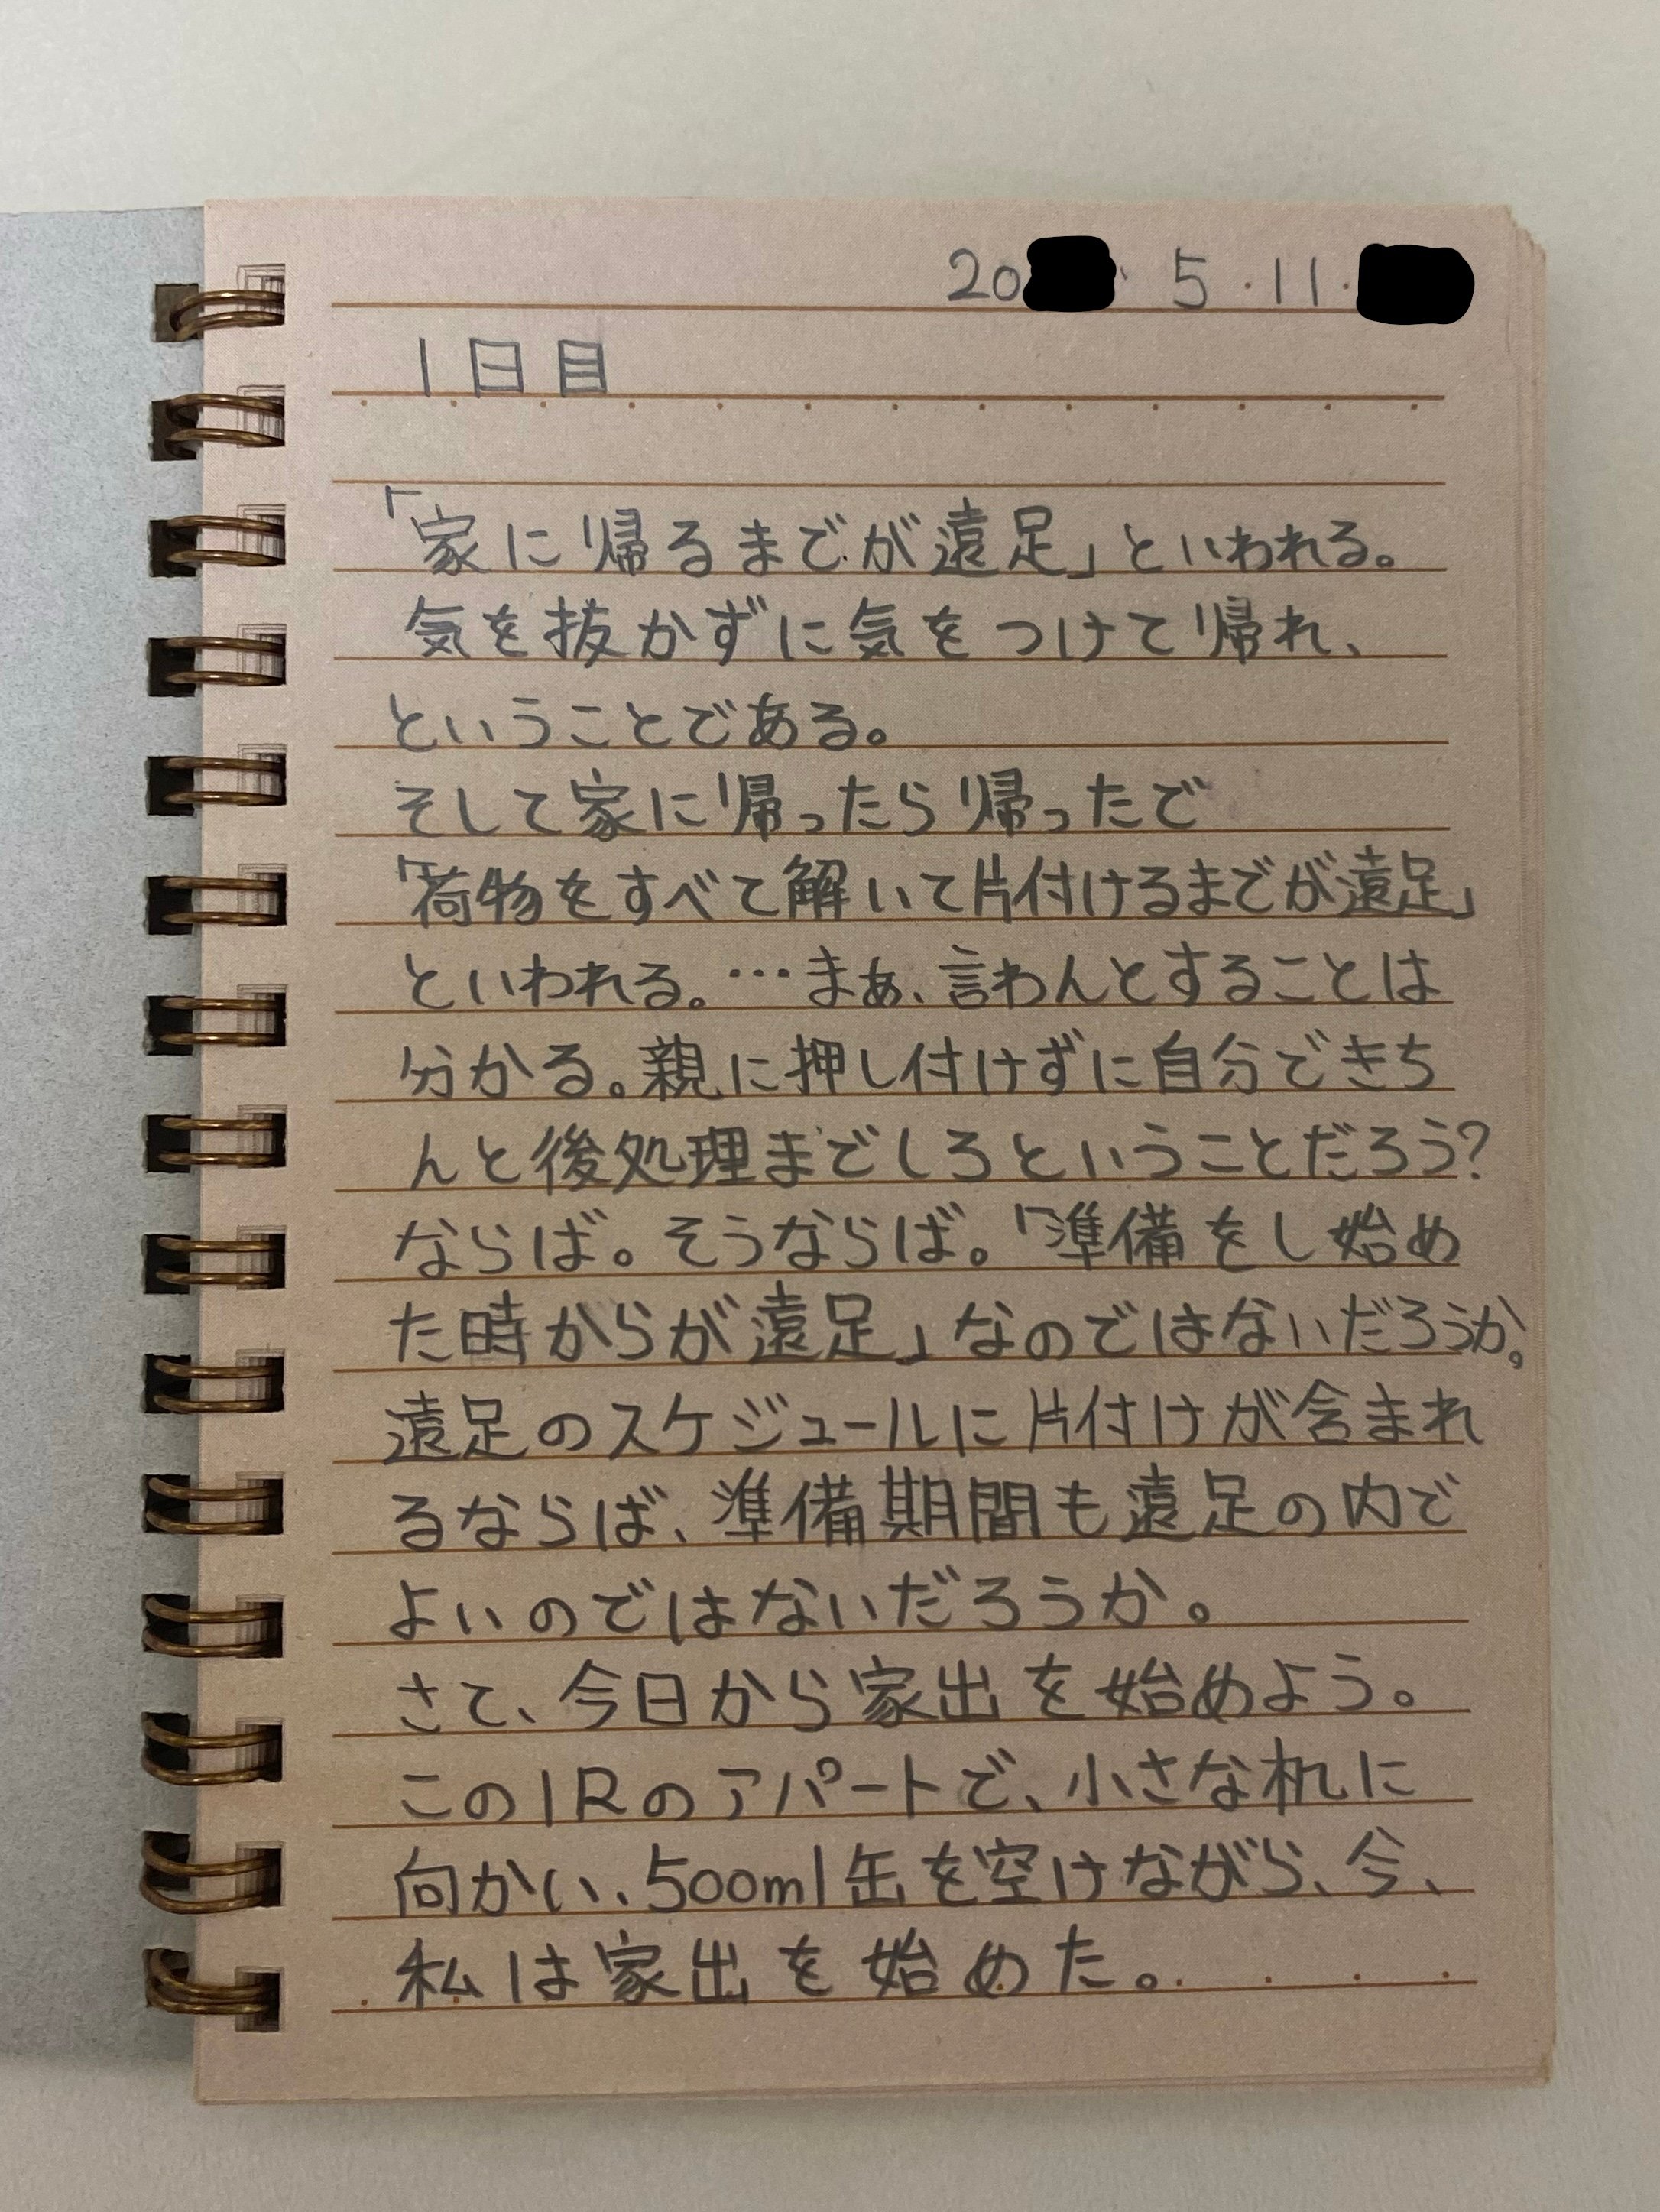 20 5・11・
1日目
「家に帰るまでが遠足」といわれる。
気を抜かずに気をつけて帰れ、
ということである。
そして家に帰ったら帰ったで
「荷物をすべて解いて片付けるまでが遠足」
といわれる。…まぁ、言わんとすることは
分かる。親に押し付けずに自分できち
んと後処理までしろということだろう?
ならば。そうならば。「準備をし始め
た時からが遠足」なのではないだろうか。
遠足のスケジュールに片付けが含まれ
るならば、準備期間も遠足の内で
よいのではないだろうか。
さて、今日から家出を始めよう。
この1Rのアパートで、小さな机に
向かい、500ml缶を空けながら、今、
私は家出を始めた。